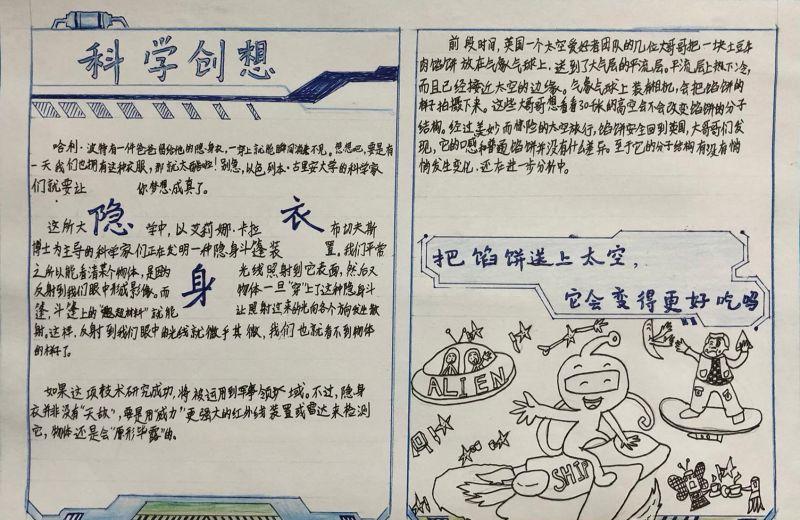 科学创想
哈利·波特有一件爸爸留给他的隐身衣,一穿上就能瞬间消失不见。想想吧,要是有
一天我们也拥有这种衣服,那就太酷啦!别急,以色列本·古里安大学的科学家
们就要让你梦想成真了。
隐身衣
这所大学中,以艾莉娜·卡拉布切夫斯
博士为主导的科学家们正在发明一种隐身斗篷装置。我们平常
之所以能看清某个物体,是因为光线照射到它表面,然后又
反射到我们眼中形成影像。而物体一旦“穿”上了这种隐身斗
篷,斗篷上的“超材料”就能让照射过来的光向各个方向发生散
射。这样,反射到我们眼中的光线就微乎其微,我们也就看不到物体
的样子了。
如果这项技术研究成功,将被运用到军事领域。不过,隐身
衣并非没有“天敌”,要是用威力更强大的红外线装置或雷达来检测
它,物体还是会“原形毕露”的。
前段时间,英国一个太空爱好者团队的几位大哥哥把一块土豆牛
肉馅饼放在气象气球上,送到了大气层的平流层。平流层上热下冷,
而且已经接近太空的边缘。气象气球上装有相机,会把馅饼的
样子拍摄下来。这些大哥哥想看看30千米的高空会不会改变馅饼的分子
结构。经过美妙而惊险的太空旅行,馅饼安全回到英国,大哥哥们发
现,它的口感和普通馅饼并没有什么差异。至于它的分子结构有没有悄
悄发生变化,还在进一步分析中。
把馅饼送上太空,
它会变得更好吃吗
ALIEN
SHIP